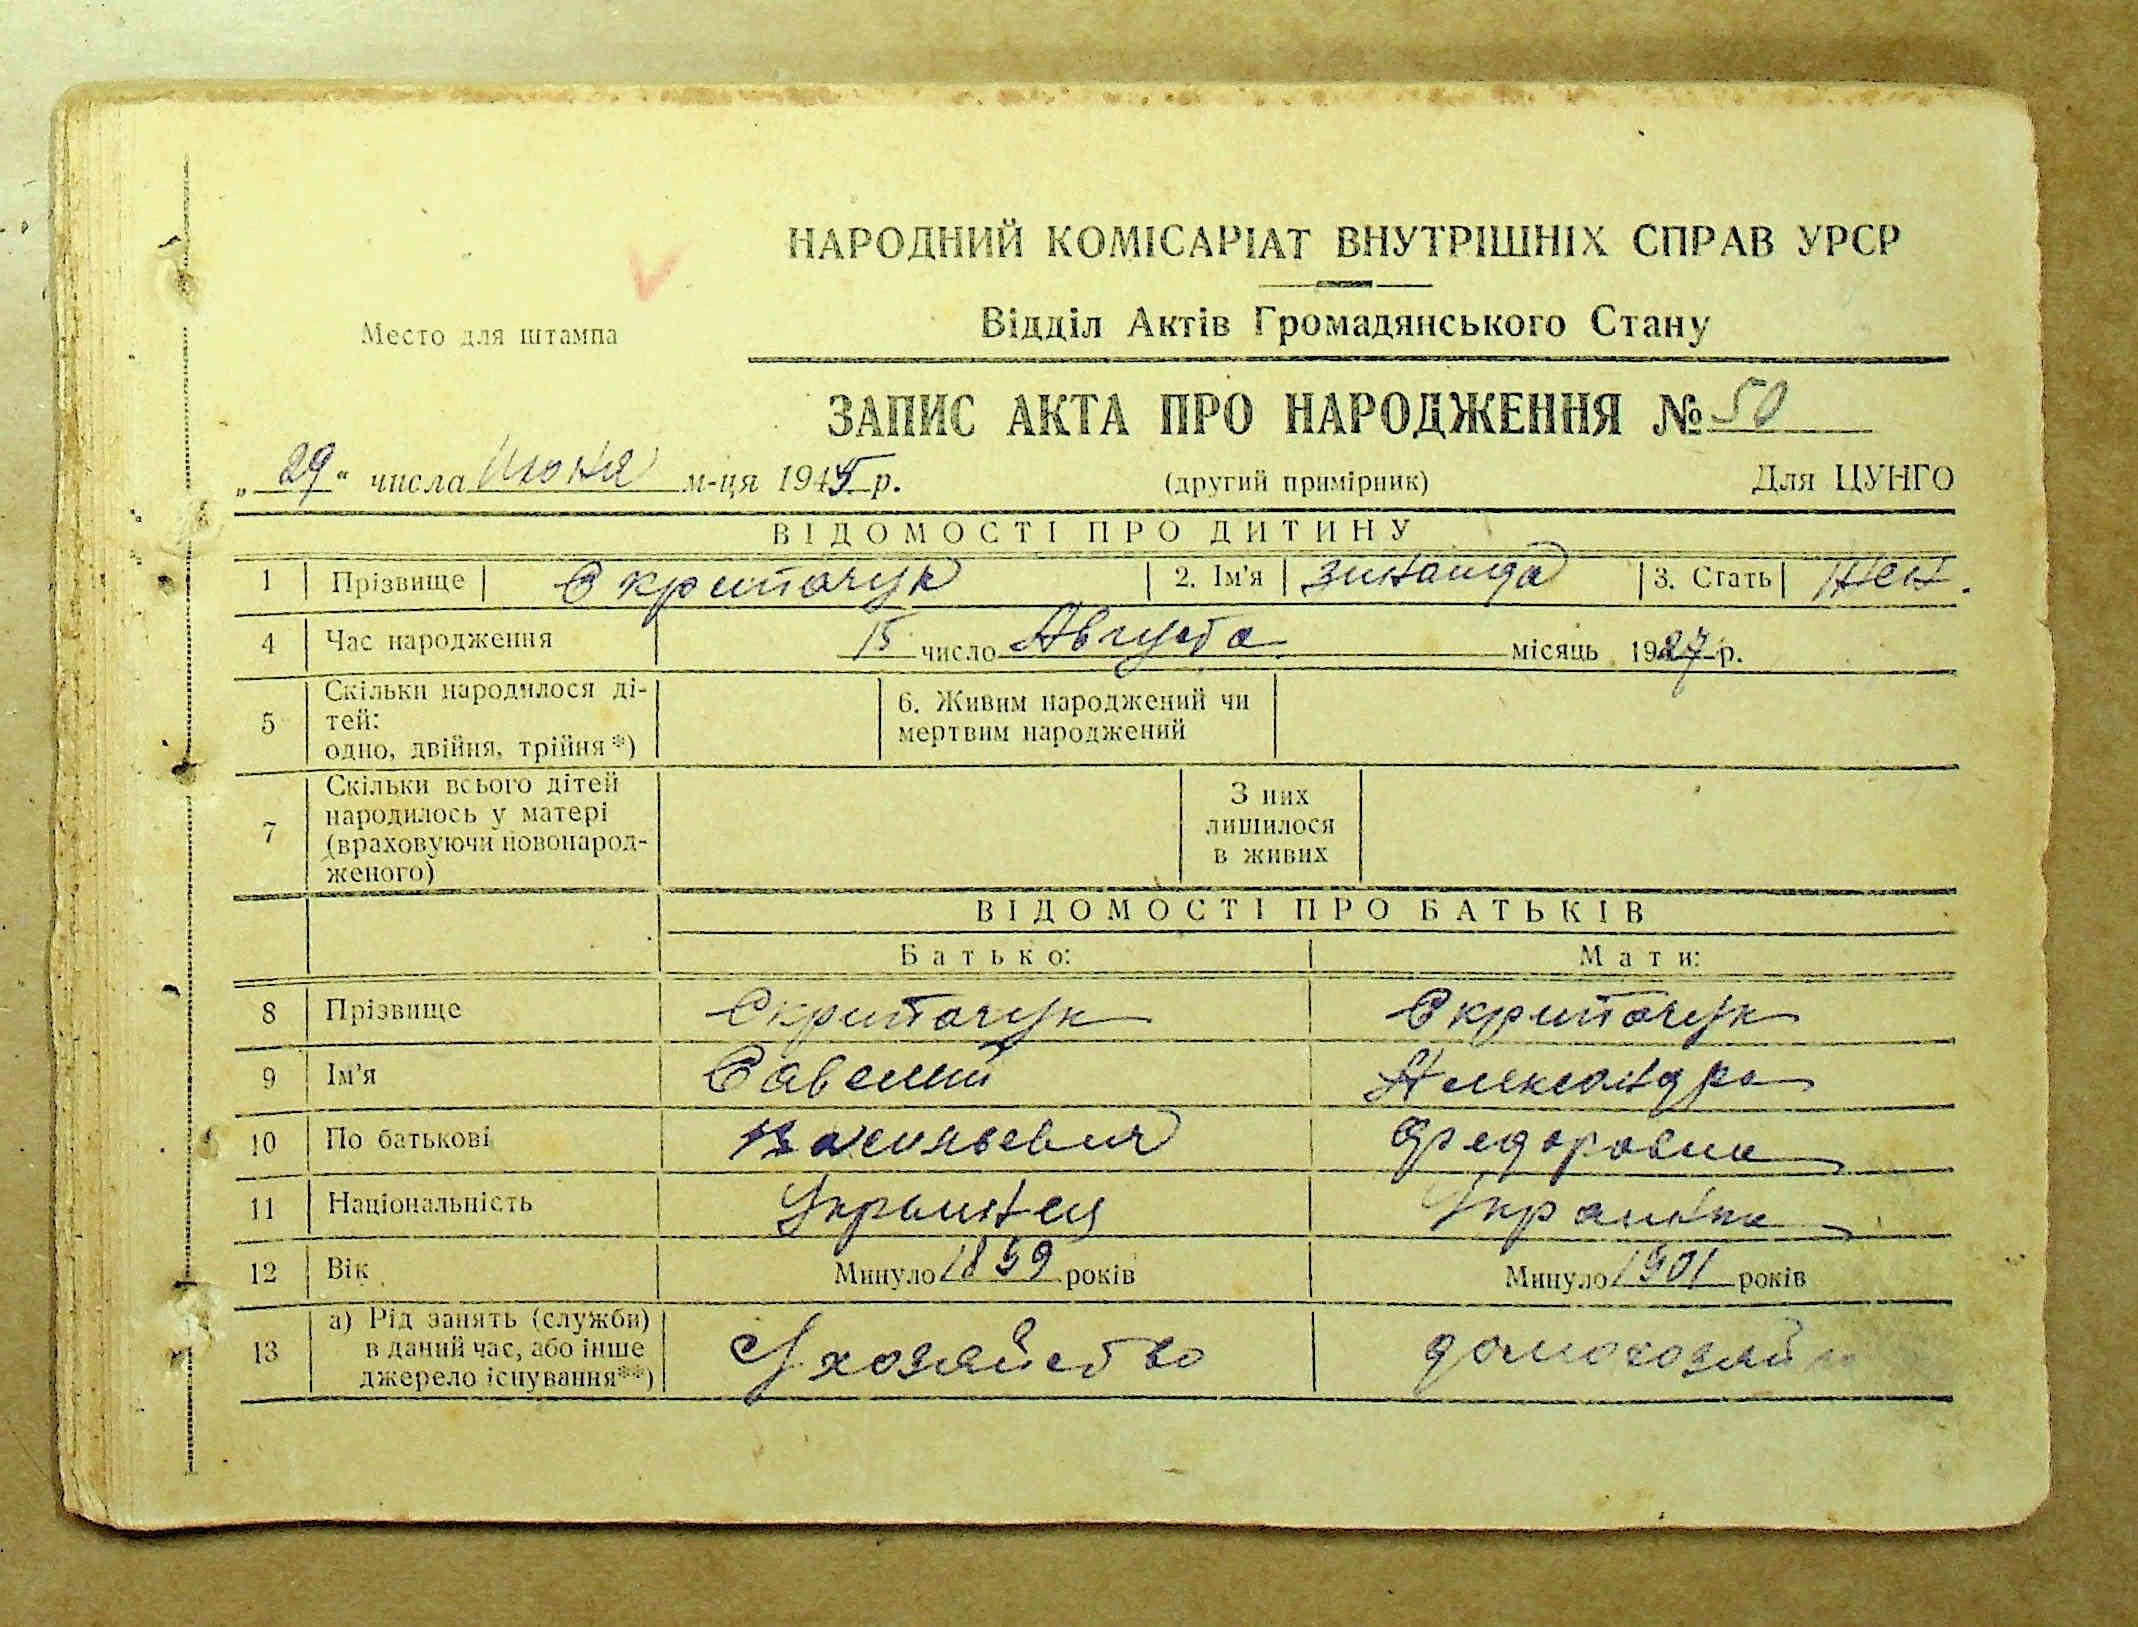 НАРОДНИЙ КОМІСАРІАТ ВНУТРІШНІХ СПРАВ УРСР
Место для штампа
Відділ Актів Громадянського Стану
ЗАПИС АКТА ПРО НАРОДЖЕННЯ № 50
„29“ числа Июня м-ця 1945 р. (другий примірник) Для ЦУНГО
ВІДОМОСТІ ПРО ДИТИНУ
1 Прізвище Скрипачук 2. Ім'я Зинаида 3. Стать Жен.
4 Час народження 15 число Августа місяць 1927 р.
5 Скільки народилося ді-
тей:
одно, двійня, трійня*)
6. Живим народжений чи
мертвим народжений
7 Скільки всього дітей
народилось у матері
(враховуючи новонарод-
женого)
З них
лишилося
в живих
ВІДОМОСТІ ПРО БАТЬКІВ
Батько: Мати:
8 Прізвище Скрипачук Скрипачук
9 Ім'я Савелий Александра
10 По батькові Федоровна
11 Національність Украинец Украинка
12 Вік Минуло 1899 років Минуло 1901 років
13 а) Рід занять (служби)
в даний час, або інше
джерело існування**)
С/хозяйство домохозяйка